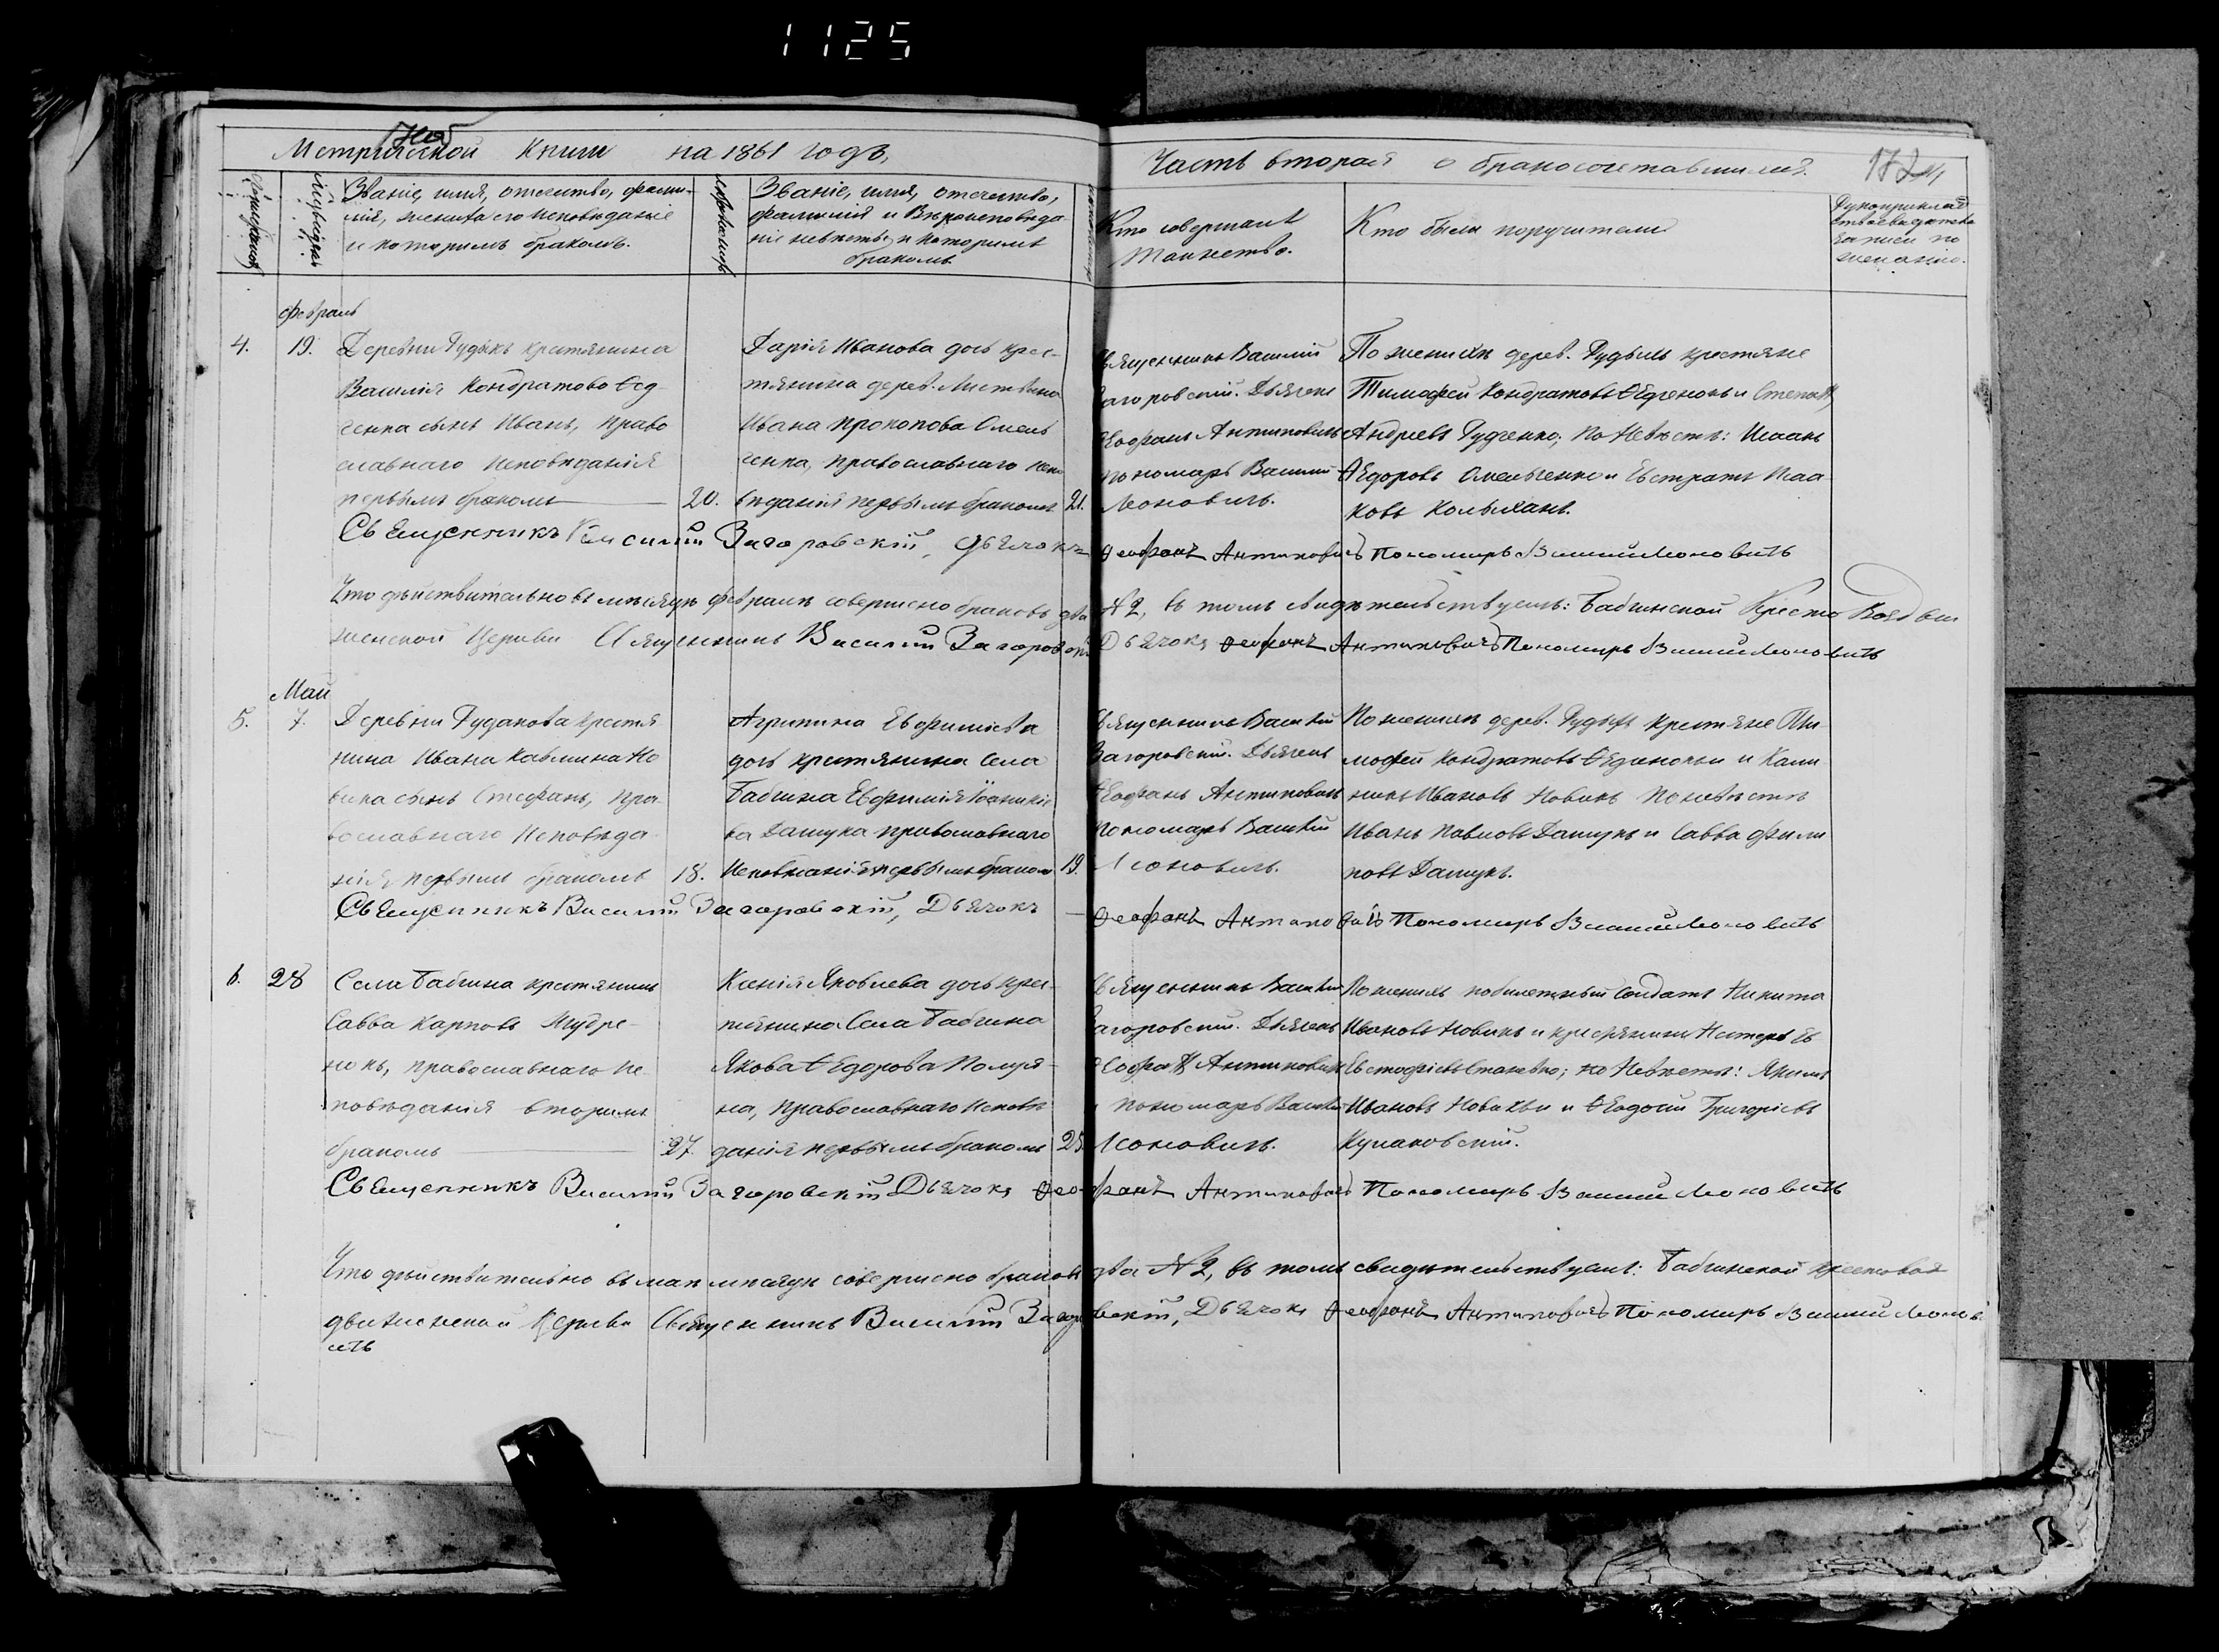 1125
Метрической Книги на 1861 годъ,
Часть вторая о бракосочетавшихся.
Званіе, имя, отечество, фами-
лія, жениха его исповѣданіе
и которымъ бракомъ.
Званіе, имя, отечество,
фамилія и Вѣроисповѣда
ніе невѣсты, и которымъ
бракомъ
Кто совершалъ
Таинство.
Кто были поручители
Рукоприклад
записи по
желанію.
Февраль
4.
19.
Деревни Рудыкъ крестянина
Василія Кондратова Фед
генка сынъ Иванъ, Право
славнаго Исповѣданія
первымъ бракомъ
20.
Дарія Иванова дочь крес-
тянина дерев.
Ивана Прокопова Омель
генка, православнаго испо
вѣданія первымъ бракомъ
21.
Священникъ Василій
Загоровскій. Дьячекъ
Ѳеофанъ Антиповичъ
пономарь Василій
Леоновичъ.
По женихѣ дерев. Рудыкъ крестяне
Тимофей Кондратовъ и Степанъ
Андреевъ Рудченко; по Невѣстѣ:
Ѳедоровъ Омельченко и Евстратъ Иса
ковъ
Священникъ Василій Загоровскій, Дьячокъ Ѳеофанъ Антиповичъ Пономарь Василій Леоновичъ
Что дѣйствительно въ мѣсяцѣ февралѣ совершено браковъ два № 2, въ томъ свидѣтельствуемъ: Бабинской Кресто Воздви
женской Церкви Священникъ Василій Загоровскій Дьячокъ Ѳеофанъ Антиповичъ Пономарь Василій Леоновичъ
Май
5.
7.
Деревни Рудакова крестя
нина Ивана Но
вика сынъ Стефанъ, Пра-
вославнаго Исповѣда
нія первымъ бракомъ
18.
Агрипина Евфиміева
дочь крестянина Села
Бабина Евфимія Іоаникіе
ва Дашука православнаго
Исповѣданія первымъ бракомъ
19.
Священникъ Василій
Загоровскій. Дьячекъ
Ѳеофанъ Антиповичъ
Пономарь Василій
Леоновичъ.
По женихѣ дерев. Рудыкъ крестяне Ти
мофей Кондратовъ и Кали
никъ Ивановъ Новикъ по невѣстѣ
Иванъ Павловъ Дашукъ и Савва Фили
повъ Дашукъ.
Священникъ Василій Загоровскій, Дьячокъ Ѳеофанъ Антиповичъ Пономарь Василій Леоновичъ
6.
28
Села Бабина крестянинъ
Савва Карповъ Мудре-
нокъ, православнаго Ис-
повѣданія вторымъ
бракомъ
27.
Ксенія Яковлева дочь крес-
тянина Села Бабина
Якова Ѳедорова Полуя-
на, православнаго Исповѣ
данія первымъ бракомъ
25
Священникъ Василій
Загоровскій. Дьячекъ
Ѳеофанъ Антиповичъ
и пономарь Василій
Леоновичъ.
По женихѣ побилетный Солдатъ Никита
Ивановъ Новикъ и крестянинъ Нестеръ Ев
по Невѣстѣ: Якимъ
Ивановъ и Ѳеодосій Григорієвъ
Кулаковскій.
Священникъ Василій Загоровскій Дьячокъ Ѳеофанъ Антиповичъ Пономарь Василій Леоновичъ
Что дѣйствительно въ маѣ мѣсяцѣ совершено браковъ два № 2, въ томъ свидѣтельствуемъ: Бабинской крестовоз
движенской Церкви Священникъ Василій Загоровскій, Дьячокъ Ѳеофанъ Антиповичъ Пономарь Василій Леонов
ичъ